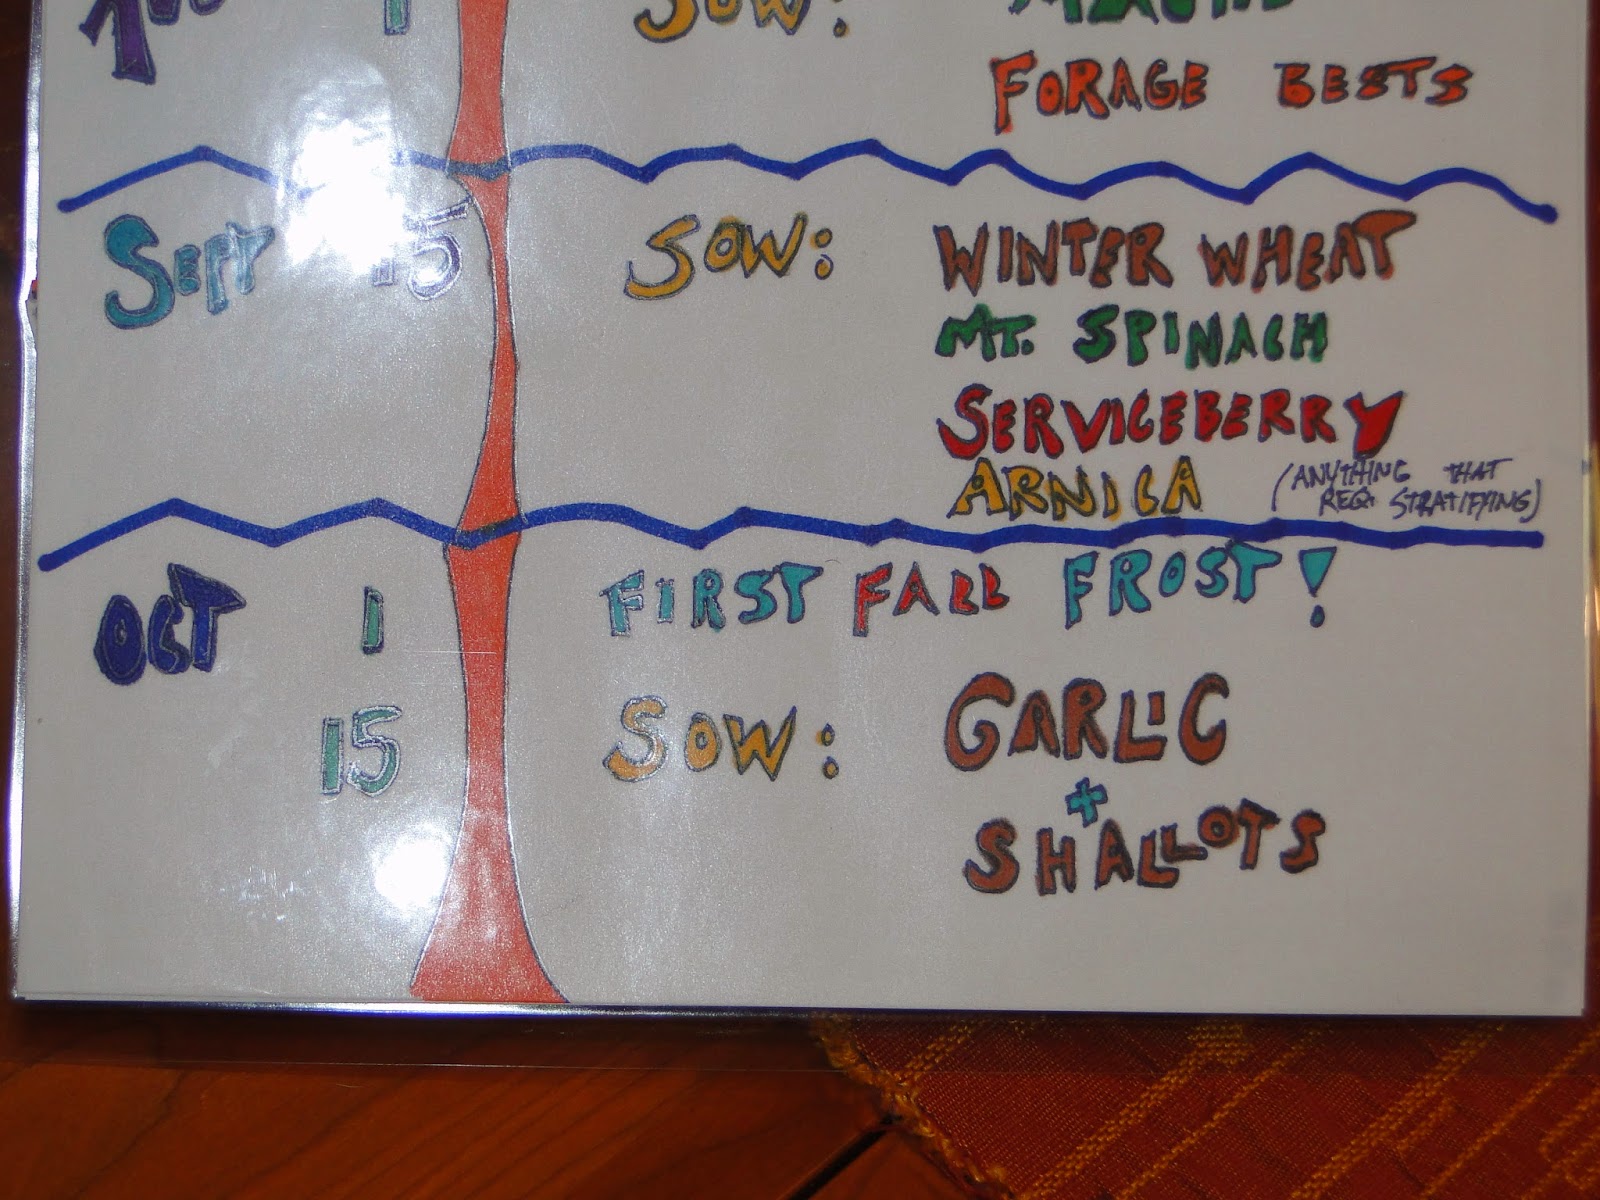 1 SOW:
FORAGE BEETS
SEPT 15 SOW: WINTER WHEAT
MT. SPINACH
SERVICEBERRY
ARNICA (ANYTHING THAT
REQ. STRATIFYING)
OCT 1 FIRST FALL FROST!
15 SOW: GARLIC
+
SHALLOTS